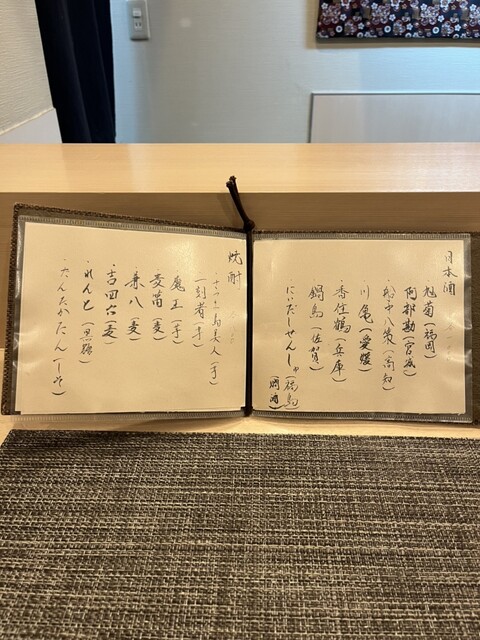 日本酒
旭菊(福岡)
阿部勘(宮城)
船中八策(高知)
川亀(愛媛)
香住鶴(兵庫)
鍋島(佐賀)
・にいだしぜんしゅ(福島)
燗酒
焼酎
・さつま島美人(芋)
一刻者(芋)
魔王(芋)
麦笛(麦)
兼八(麦)
・吉四六(麦)
・れんと(黒糖)
・たんたかたん(しそ)